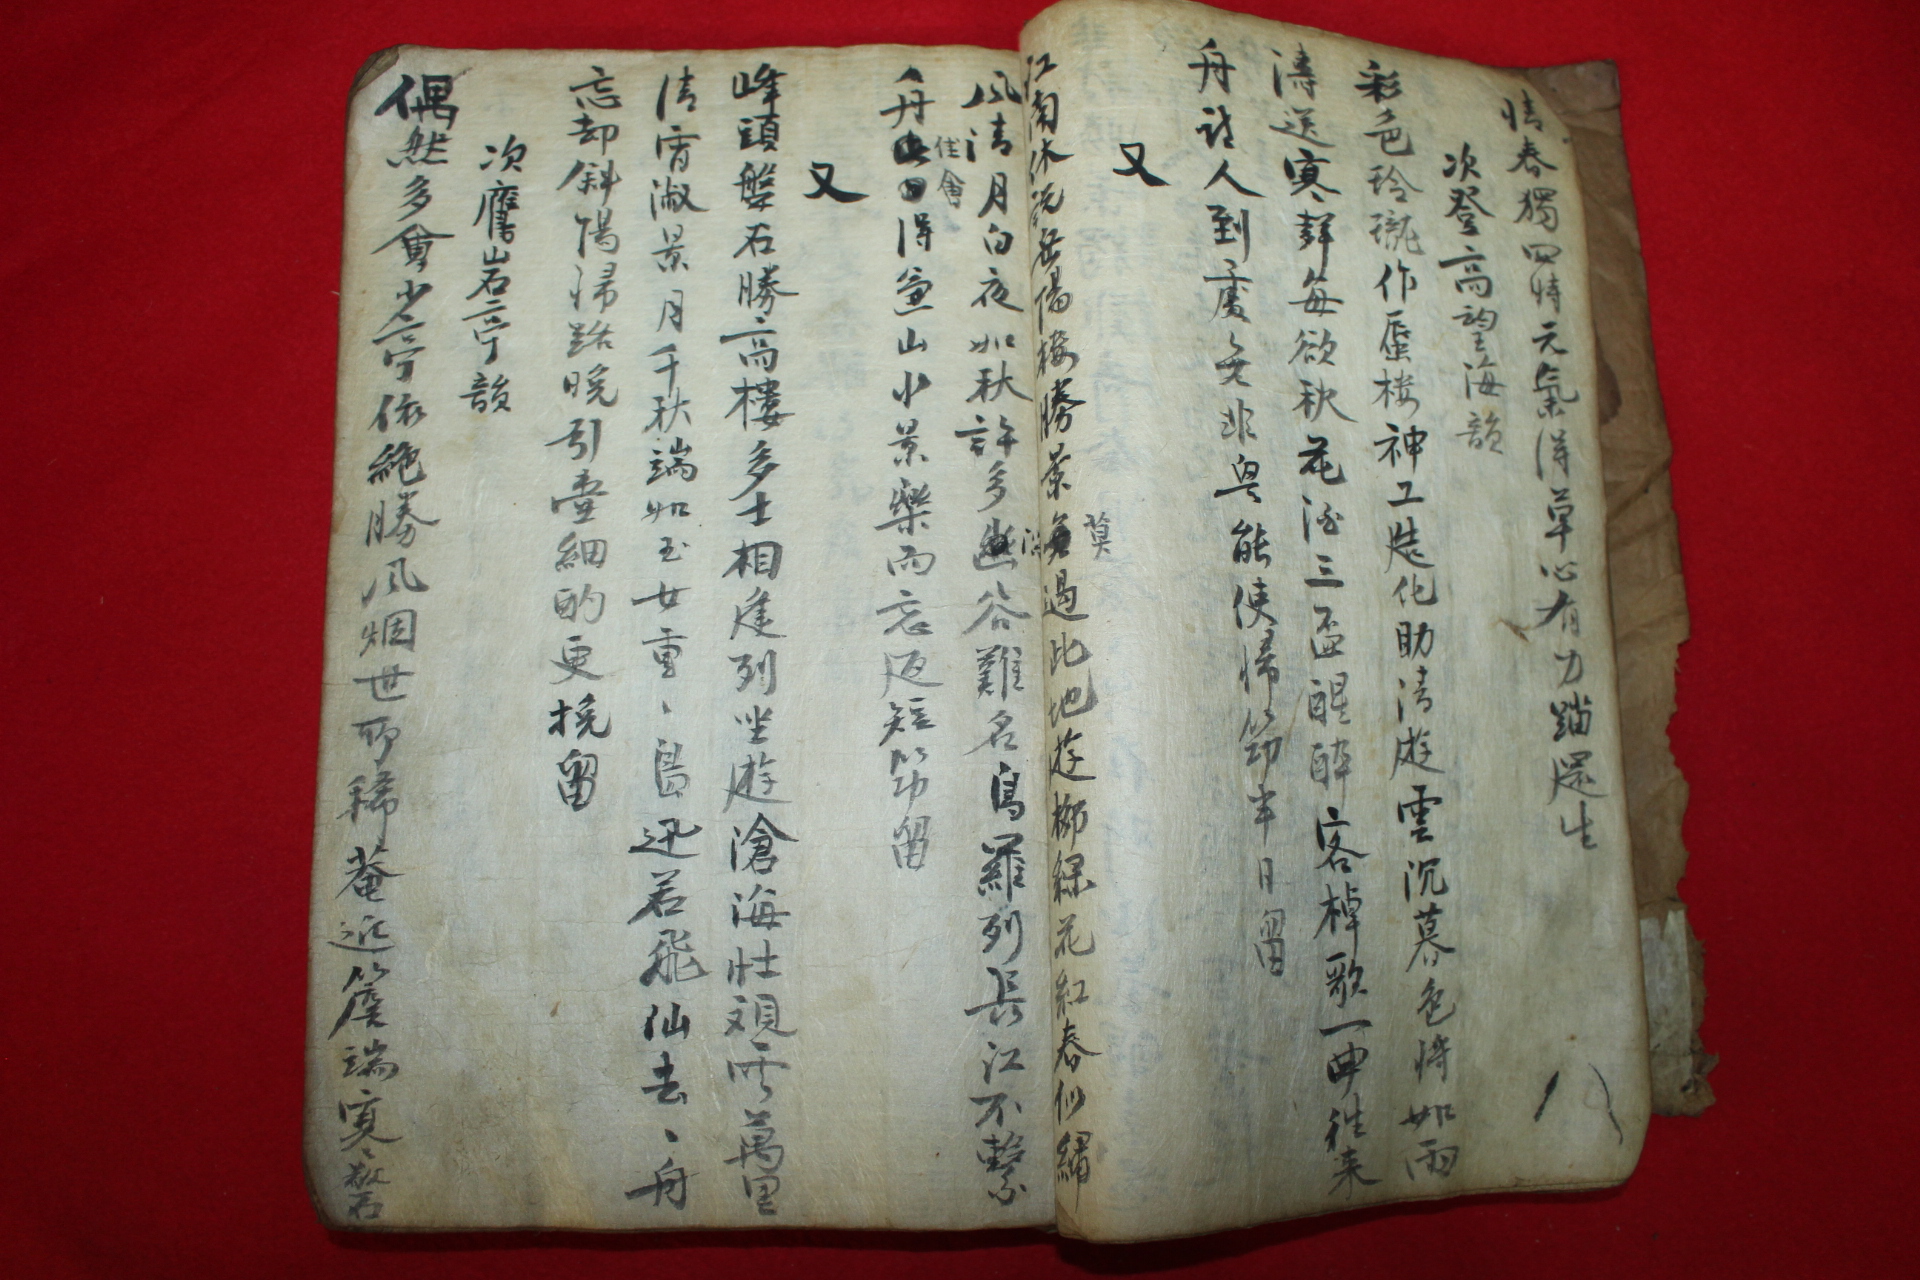 情春獨四時元氣得草心有力踏還生
次登高望海韻
彩色玲瓏作蜃樓神工裝化助清遊雲沉暮色將如雨
濤送寒聲每欲秋花酒三盃醒醉客棹歌一曲往來
舟詩人到處無非興能使帰笻半日留
又
江南休說岳陽樓勝景莫過此地遊柳綠花紅春似繡
風淸月白夜如秋許多幽谷難名鳥羅列長江不繫
舟 住會 得兼山水景樂而忘返短笻留
又
峰頭盤石勝高樓多士相逢列坐遊滄海壯觀雲萬里
清宵淑景月千秋端如玉女重重島迅若飛仙去去舟
忘却斜陽帰路晚引壺細酌更挽留
次鷹岩亭韻
偶然多會少亭依絶勝風烟世所稀菴近 端寒